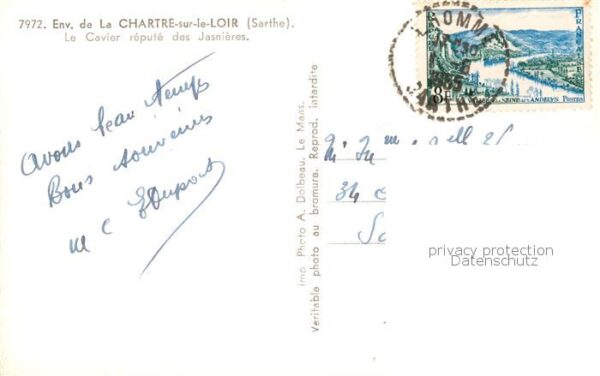 7972. Env. de La CHARTRE-sur-le-LOIR (Sarthe).
Le Cavier réputé des Jasnières.
avons beau temps
Bons souvenirs
Dupont
Imp. Photo A. Dolbeau. Le Mans.
Veritable photo au bromure. Reprod. interdite
LHOMME
SARTHE
FRANÇAISE
8F
LA SEINE AUX ANDELYS POSTES
34
privacy protection
Datenschutz